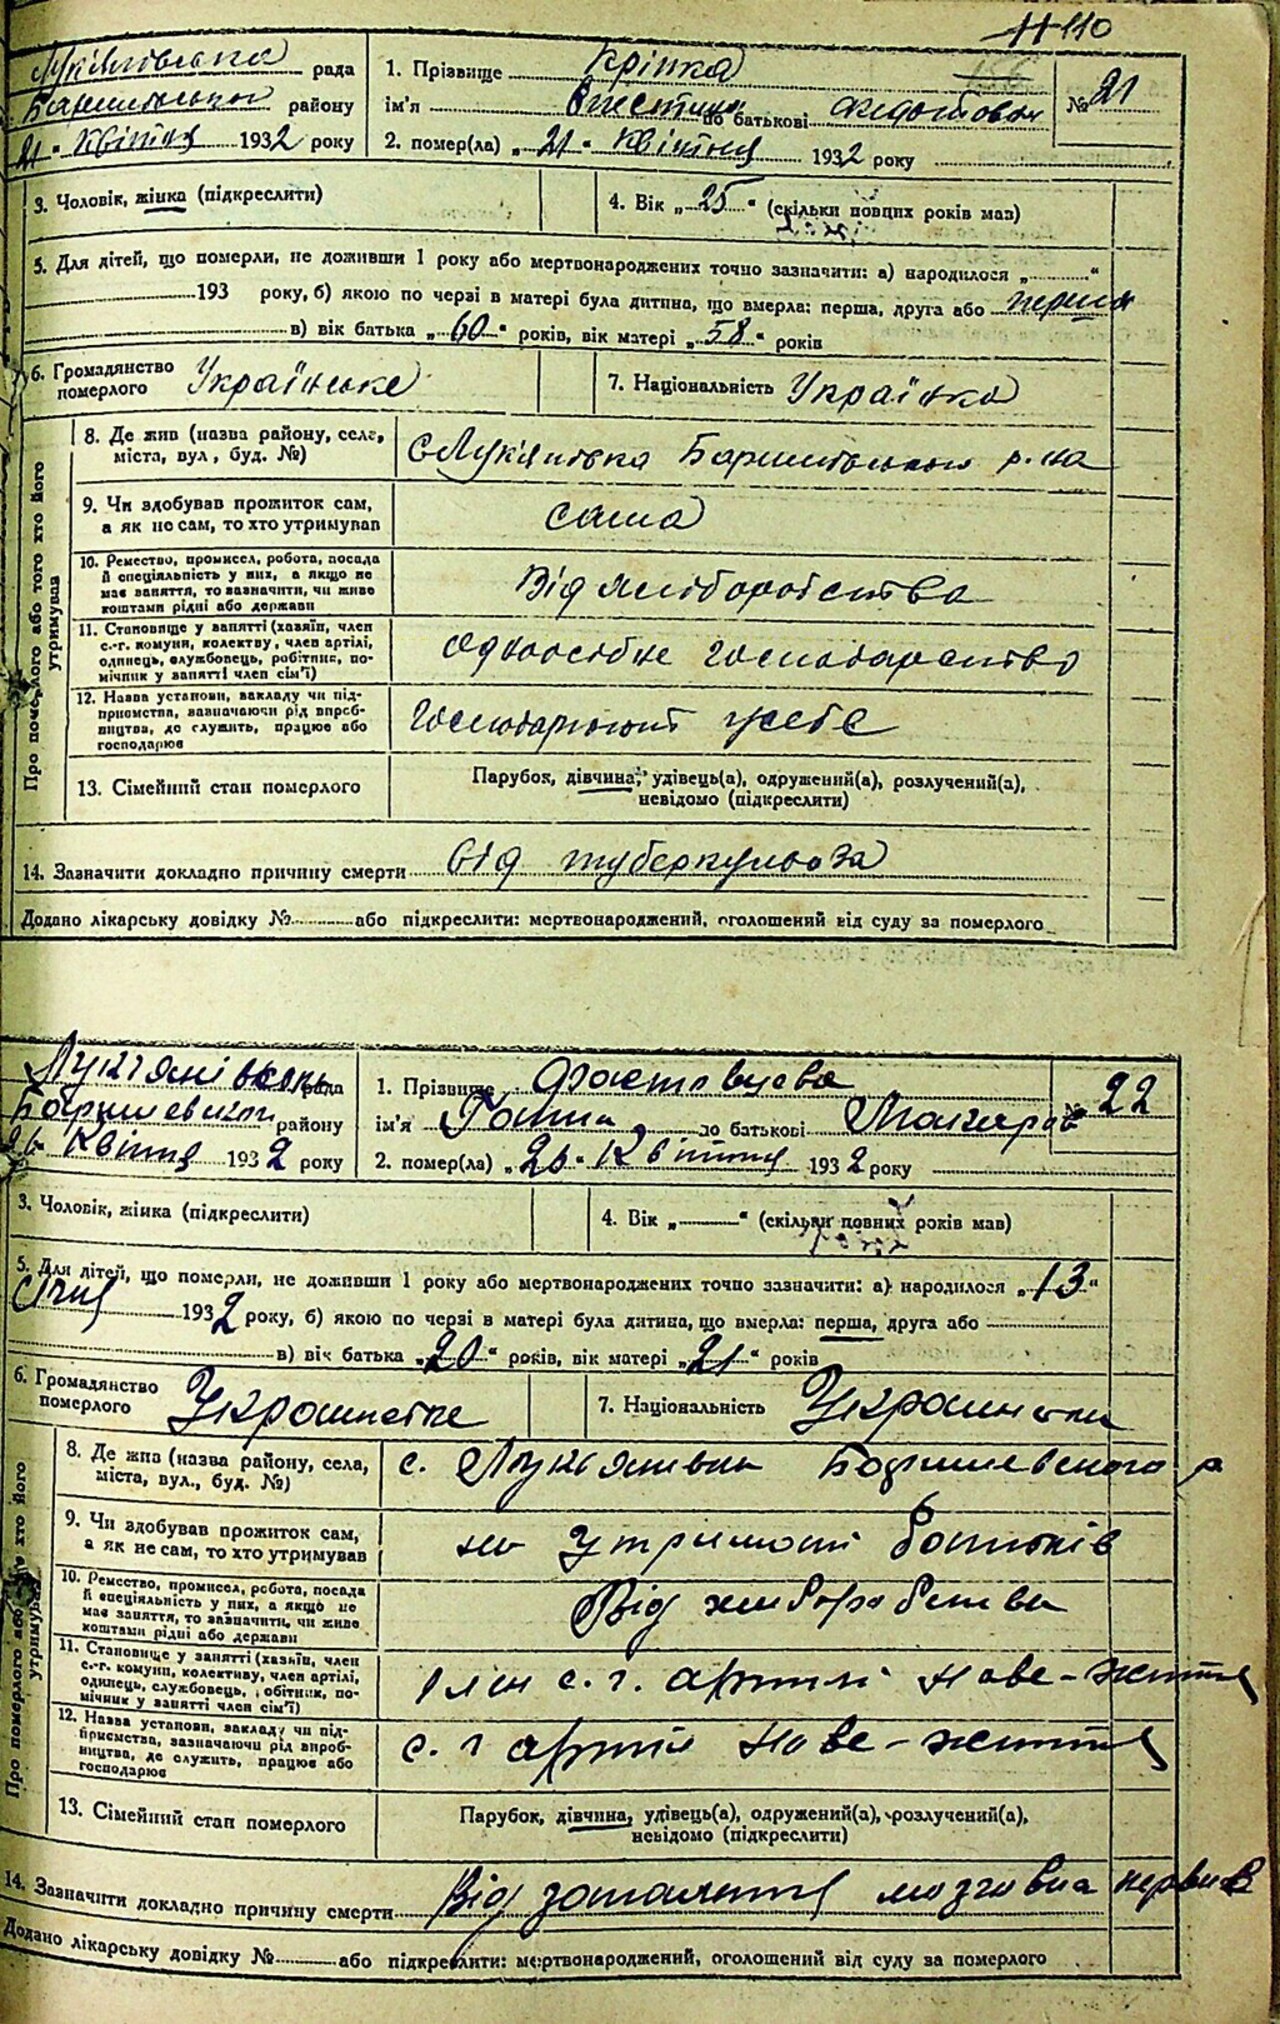 110
рада
Баришівського району
21 " Квітня 1932 року
1. Прізвище Кріпка
ім'я по батькові
№ 21
2. помер(ла) „ 21 " Квітня 1932 року
3. Чоловік, жінка (підкреслити)
4. Вік „ 25 " (скільки повних років мав)
5. Для дітей, що померли, не доживши 1 року або мертвонароджених точно зазначити: а) народилося „ "
193 року, б) якою по черзі в матері була дитина, що вмерла: перша, друга або перша
в) вік батька „ 60 " років, вік матері „ 58 " років
6. Громадянство померлого Українське
7. Національність Українка
Про померлого або того хто його утримував
8. Де жив (назва району, села, міста, вул, буд. №)
с Лук'янівка Баришівського р-на
9. Чи здобував прожиток сам, а як не сам, то хто утримував
сама
10. Ремество, промисел, робота, посада й спеціяльність у них, а якщо не має заняття, то зазначити, чи живе коштами рідні або держави
Від хліборобства
11. Становище у занятті (хазяїн, член с.-г. комуни, колективу, член артілі, одинець, службовець, робітник, помічник у занятті член сім'ї)
одноосібне господарство
12. Назва установи, закладу чи підприємства, зазначаючи рід виробництва, де служить, працює або господарює
у себе
13. Сімейний стан померлого
Парубок, дівчина, удівець(а), одружений(а), розлучений(а), невідомо (підкреслити)
14. Зазначити докладно причину смерти від туберкульоза
Додано лікарську довідку № або підкреслити: мертвонароджений, оголошений від суду за померлого
рада
району
26 Квітня 1932 року
1. Прізвище
ім'я Ганна по батькові Макаров
№ 22
2. помер(ла) „ 26 " Квітня 1932 року
3. Чоловік, жінка (підкреслити)
4. Вік „ " (скільки повних років мав)
5. Для дітей, що померли, не доживши 1 року або мертвонароджених точно зазначити: а) народилося „ 13 "
Січня 1932 року, б) якою по черзі в матері була дитина, що вмерла: перша, друга або
в) вік батька „ 20 " років, вік матері „ 21 " років
6. Громадянство померлого
7. Національність
Про померлого або того хто його утримував
8. Де жив (назва району, села, міста, вул., буд. №)
с. Лукьянивка Баришевского р
9. Чи здобував прожиток сам, а як не сам, то хто утримував
на утримані батьків
10. Ремество, промисел, робота, посада й спеціяльність у них, а якщо не має заняття, то зазначити, чи живе коштами рідні або держави
Від хлиборобства
11. Становище у занятті (хазяїн, член с.-г. комуни, колективу, член артілі, одинець, службовець, робітник, помічник у занятті член сім'ї)
член с. г. артилі Нове-життя
12. Назва установи, закладу чи підприємства, зазначаючи рід виробництва, де служить, працює або господарює
с. г артіл Нове-життя
13. Сімейний стан померлого
Парубок, дівчина, удівець(а), одружений(а), розлучений(а), невідомо (підкреслити)
14. Зазначити докладно причину смерти Від запалення
Додано лікарську довідку № або підкреслити: мертвонароджений, оголошений від суду за померлого